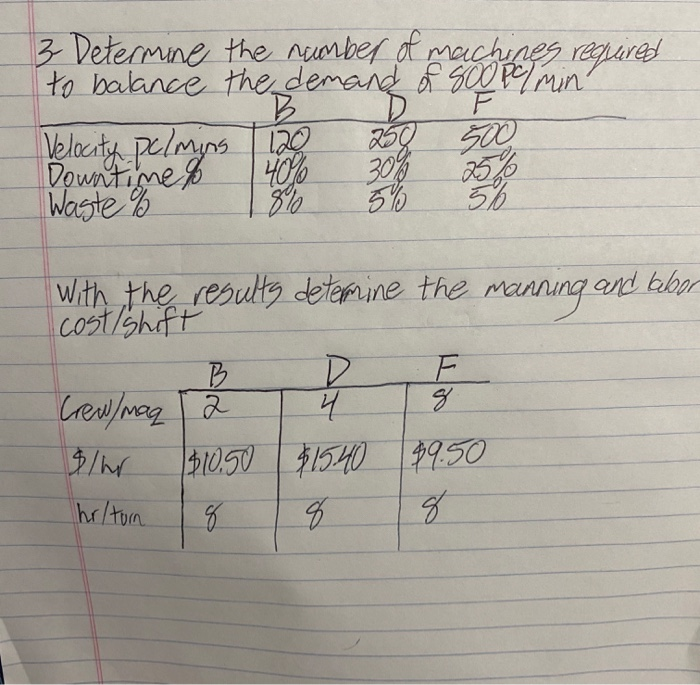 3- Determine the number of machines required
to balance the demand of 800 pc/min
B D F
Velocity pc/mins 120 250 500
Downtime % 40% 30% 25%
Waste % 8% 5% 5%
With the results determine the manning and labor
cost/shift
B D F
Crew/maq 2 4 8
$/hr $10.50 $15.40 $9.50
hr/turn 8 8 8